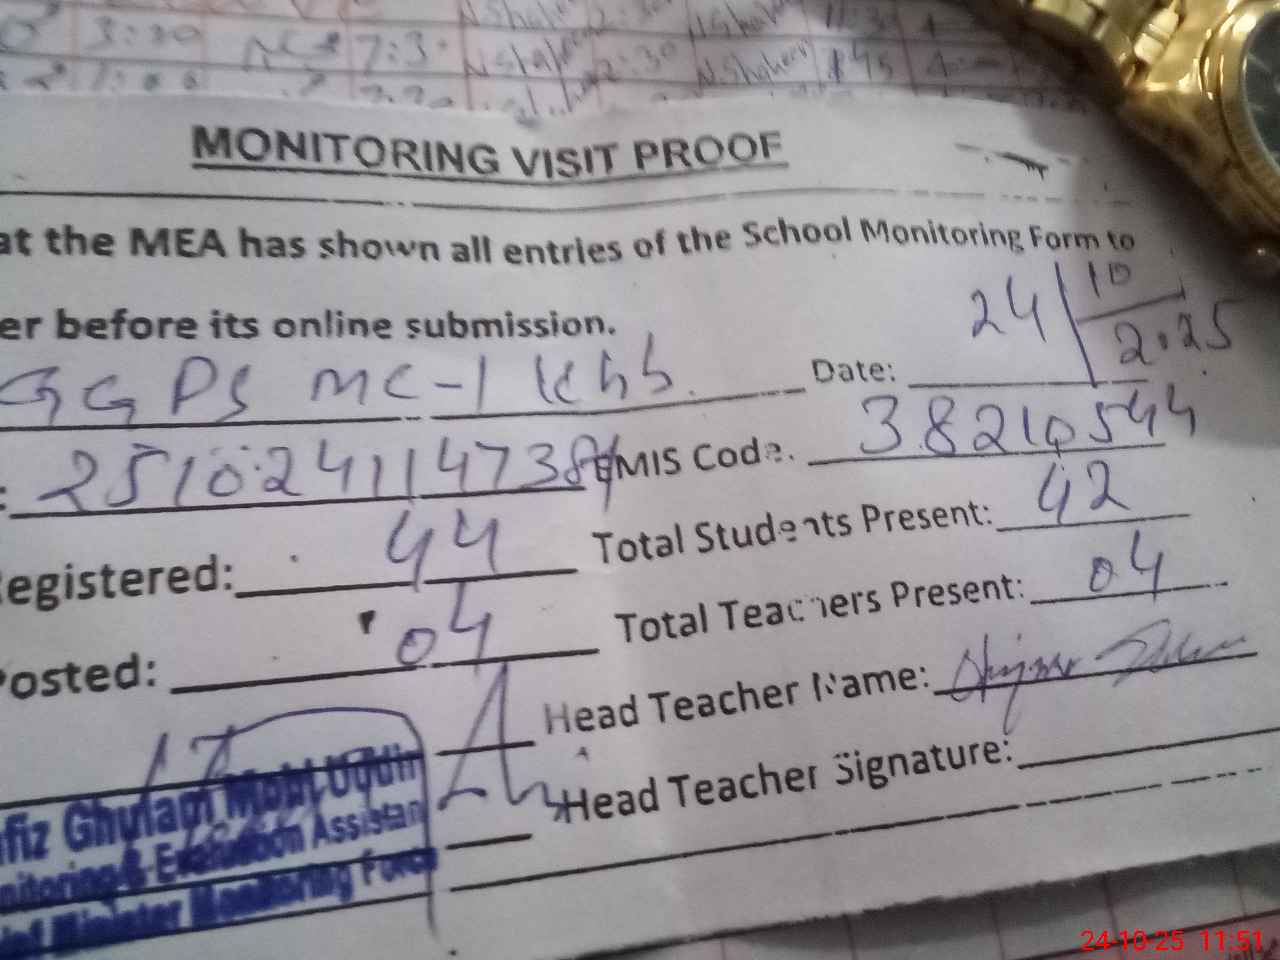 3:30 7:3 N.Shaheen 2:30 11:30
N.Shaheen 2:30 N.Shaheen 1:45
MONITORING VISIT PROOF
at the MEA has shown all entries of the School Monitoring Form to
er before its online submission.
GGPS MC-1 Khb. Date: 24/10/2025
: 25102411147384 EMIS Code. 38210544
Registered: 44 Total Students Present: 42
Posted: 04 Total Teachers Present: 04
Head Teacher Name:
Head Teacher Signature:
afiz Ghulam Mohi Uddin
nitoring & Evaluation Assistan
ief Minister Monitoring Force
24-10-25 11:51